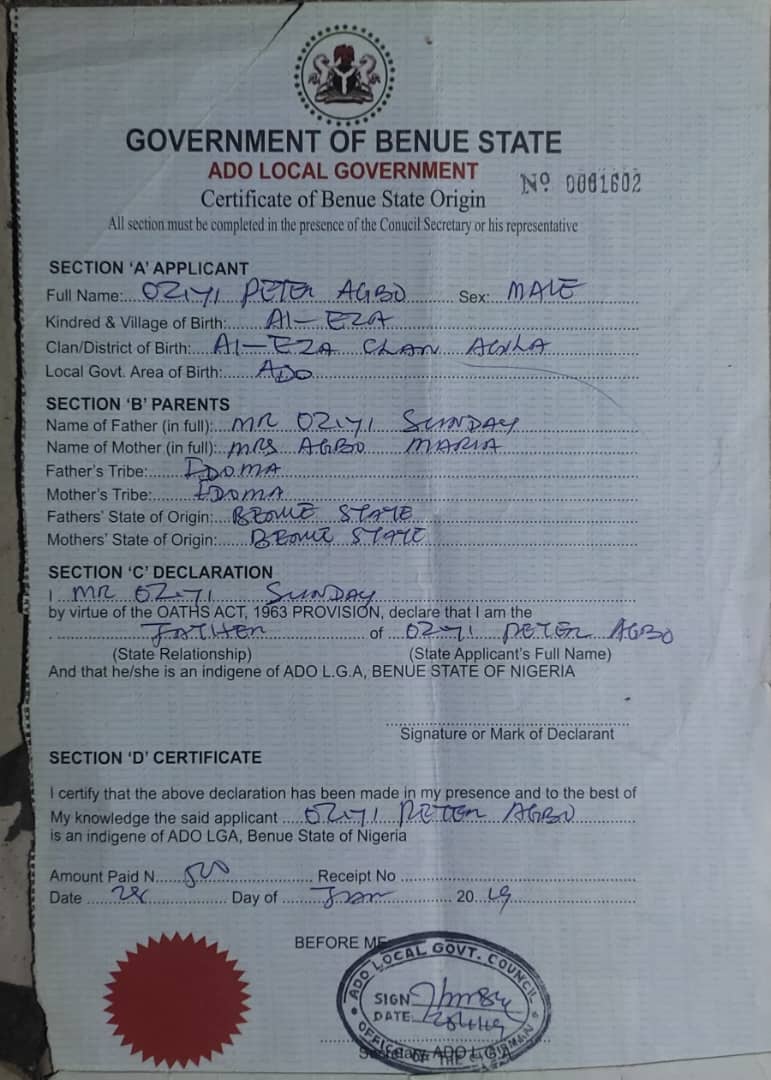 GOVERNMENT OF BENUE STATE
ADO LOCAL GOVERNMENT
Nº 0001602
Certificate of Benue State Origin
All section must be completed in the presence of the Conucil Secretary or his representative
SECTION 'A' APPLICANT
Full Name: OZIYI PETER AGBO Sex: MALE
Kindred & Village of Birth: AI-EZA
Clan/District of Birth: AI-EZA CLAN AGILA
Local Govt. Area of Birth: ADO
SECTION 'B' PARENTS
Name of Father (in full): MR OZIYI SUNDAY
Name of Mother (in full): MRS AGBO MARIA
Father's Tribe: IDOMA
Mother's Tribe: IDOMA
Fathers' State of Origin: BENUE STATE
Mothers' State of Origin: BENUE STATE
SECTION 'C' DECLARATION
I MR OZIYI SUNDAY
by virtue of the OATHS ACT, 1963 PROVISION, declare that I am the
FATHER of OZIYI PETER AGBO
(State Relationship) (State Applicant's Full Name)
And that he/she is an indigene of ADO L.G.A, BENUE STATE OF NIGERIA
Signature or Mark of Declarant
SECTION 'D' CERTIFICATE
I certify that the above declaration has been made in my presence and to the best of
My knowledge the said applicant OZIYI PETER AGBO
is an indigene of ADO LGA, Benue State of Nigeria
Amount Paid N 500 Receipt No
Date 28 Day of Jan 2019
BEFORE ME
ADO LOCAL GOVT. COUNCIL
SIGN
DATE
OFFICE OF THE CHAIRMAN
Secretary ADO L.G.A